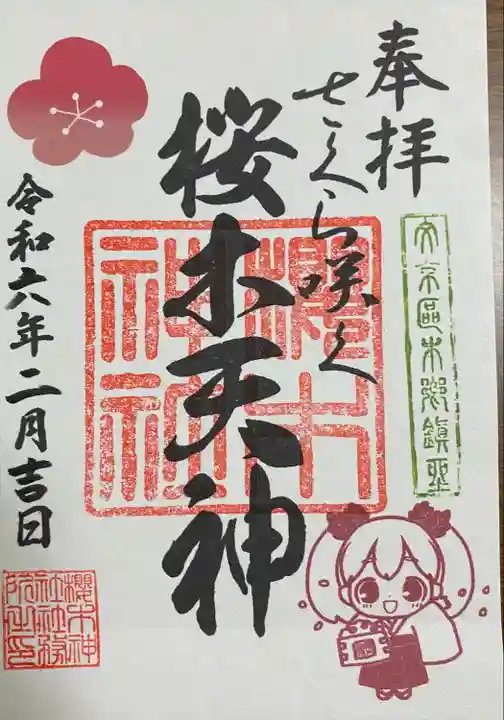 奉拝
さくら咲く
桜木天神
櫻木神社
文京區本郷鎮座
令和六年二月吉日
櫻木神社社務所之印